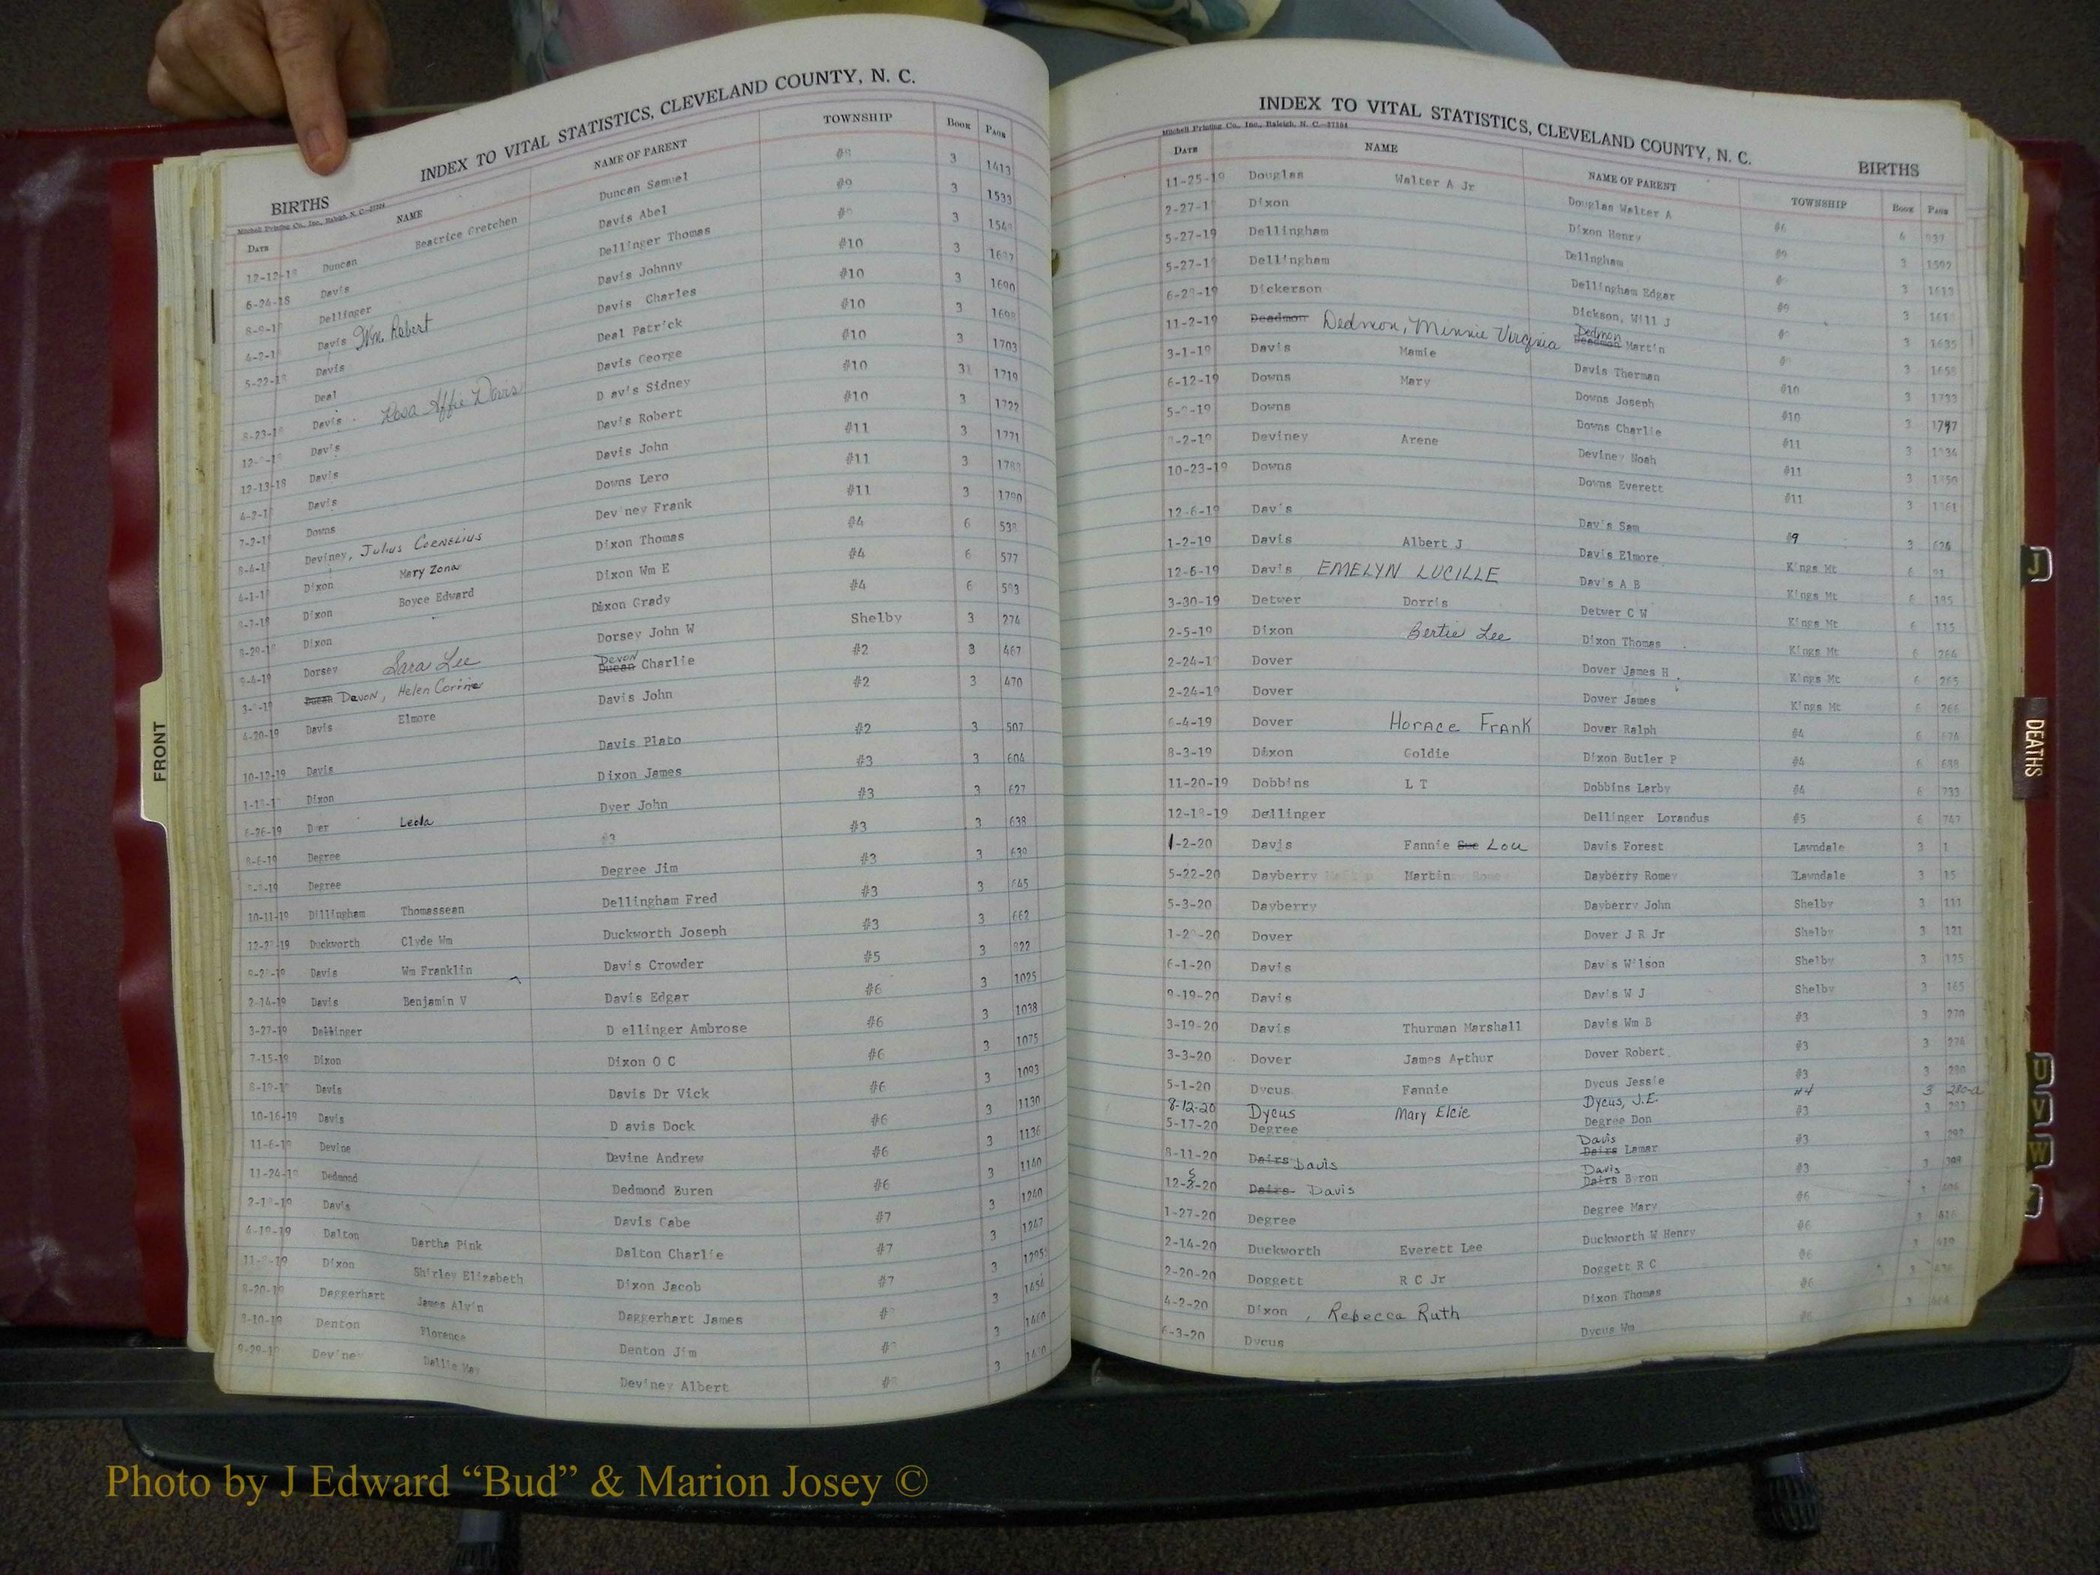 INDEX TO VITAL STATISTICS, CLEVELAND COUNTY, N. C.
BIRTHS
Mitchell Printing Co., Inc., Raleigh, N. C.
DATE NAME NAME OF PARENT TOWNSHIP BOOK PAGE
12-12-18 Duncan Beatrice Gretchen Duncan Samuel 3 1413
6-24-18 Davis Davis Abel #9 3 1533
Dellinger Dellinger Thomas 3
Davis Wm. Robert Davis Johnny #10 3
Davis Davis Charles #10 3 1690
Deal Deal Patrick #10 3
Davis Rosa Affie Davis Davis George #10 3 1703
Davis D avis Sidney #10 1719
12-13-18 Davis Davis Robert #10 3 1722
Davis Davis John #11 3 1771
Downs Downs Lero #11 3
Deviney, Julius Cornelius Deviney Frank #11 3 1790
Dixon Mary Zona Dixon Thomas #4 6
Dixon Boyce Edward Dixon Wm E #4 6 577
Dixon Dixon Grady #4 6 583
9-4-19 Dorsey Sara Lee Dorsey John W Shelby 3 274
Ducan Devon, Helen Corine Devon Ducan Charlie #2 3 467
4-20-19 Davis Elmore Davis John #2 3 470
10-12-19 Davis Davis Plato #2 3 507
Dixon Dixon James #3 3 604
6-26-19 Dyer Leola Dyer John #3 3 627
8-6-19 Degree #3 #3 3 638
Degree Degree Jim #3 3 639
10-11-19 Dillingham Thomassean Dellingham Fred #3 3 645
Duckworth Clyde Wm Duckworth Joseph #3 3 662
Davis Wm Franklin Davis Crowder #5 3 922
2-14-19 Davis Benjamin V Davis Edgar #6 3 1025
3-27-19 Dellinger D ellinger Ambrose #6 3 1038
7-15-19 Dixon Dixon O C #6 3 1075
Davis Davis Dr Vick #6 3 1093
10-16-19 Davis D avis Dock #6 3 1130
11-6-19 Devine Devine Andrew #6 3 1136
11-24-19 Dedmond Dedmond Buren #6 3 1140
Davis Davis Cabe #7 3 1240
4-19-19 Dalton Dartha Pink Dalton Charlie #7 3 1247
Dixon Shirley Elizabeth Dixon Jacob #7 3
8-20-19 Daggerhart James Alvin Daggerhart James 3 1454
8-10-19 Denton Florence Denton Jim 3 1460
Deviney Dallie May Deviney Albert 3
INDEX TO VITAL STATISTICS, CLEVELAND COUNTY, N. C.
BIRTHS
Mitchell Printing Co., Inc., Raleigh, N. C.—27104
DATE NAME NAME OF PARENT TOWNSHIP BOOK PAGE
11-25-19 Douglas Walter A Jr Douglas Walter A #6
Dixon Dixon Henry #9 3
5-27-19 Dellingham Dellngham 3
Dellingham Dellingham Edgar #9 3
Dickerson Dickson, Will J 3
11-2-19 Deadmon Dedmon, Minnie Virginia Dedmon Deadmon Martin 3
3-1-19 Davis Mamie Davis Therman #10 3 1733
6-12-19 Downs Mary Downs Joseph #10 3 1797
Downs Downs Charlie #11 3
Deviney Arene Deviney Noah #11 3
10-23-19 Downs Downs Everett #11 3
12-6-19 Davis Davis Sam #9 3
1-2-19 Davis Albert J Davis Elmore Kings Mt 6
12-6-19 Davis EMELYN LUCILLE Davis A B Kings Mt 6
3-30-19 Detwer Dorris Detwer C W Kings Mt 6
2-5-19 Dixon Bertie Lee Dixon Thomas Kings Mt 6 264
Dover Dover James H Kings Mt 6 265
2-24-19 Dover Dover James Kings Mt 6 266
6-4-19 Dover Horace Frank Dover Ralph #4 6
8-3-19 Dixon Goldie Dixon Butler P #4 6 688
11-20-19 Dobbins L T Dobbins Larby #4 6 733
Dellinger Dellinger Lorandus #5 6 747
1-2-20 Davis Fannie Sue Lou Davis Forest Lawndale 3 1
5-22-20 Dayberry Martin Dayberry Rome Lawndale 3 15
5-3-20 Dayberry Dayberry John Shelby 3 111
Dover Dover J R Jr Shelby 3 121
6-1-20 Davis Davis Wilson Shelby 3
9-19-20 Davis Davis W J Shelby 3 165
3-19-20 Davis Thurman Marshall Davis Wm B #3 3 270
3-3-20 Dover James Arthur Dover Robert #3 3 274
5-1-20 Dycus Fannie Dycus Jessie #3 3 280
8-12-20 Dycus Mary Elcie Dycus, J.E. #4 3 280-a
5-17-20 Degree Degree Don #3 3
8-11-20 Dairs Davis Davis Dairs Lamar #3
Dairs Davis Davis Dairs Byron #3
1-27-20 Degree Degree Mary #6
2-14-20 Duckworth Everett Lee Duckworth W Henry #6
2-20-20 Doggett R C Jr Doggett R C #6
4-2-20 Dixon, Rebecca Ruth Dixon Thomas #6
6-3-20 Dycus Dycus Wm
FRONT
J
DEATHS
U
V
W
Photo by J Edward “Bud” & Marion Josey ©